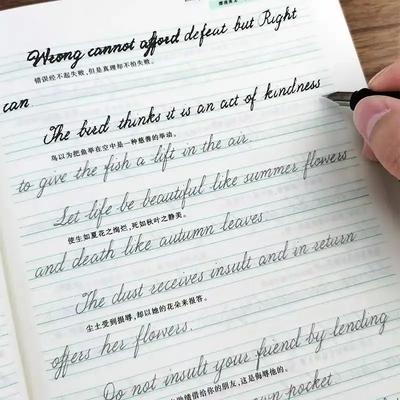 Wrong cannot afford defeat but Right
错误经不起失败，但是真理却不怕失败。
can
The bird thinks it is an act of kindness
鸟以为把鱼举在空中是一种慈善的举动。
to give the fish a lift in the air.
Let life be beautiful like summer flowers
使生如夏花之绚烂，死如秋叶之静美。
and death like autumn leaves.
The dust receives insult and in return
尘土受到损辱，却以她的花朵来报答。
offers her flowers.
Do not insult your friend by lending
借给你的朋友，这是侮辱他的。
own pocket